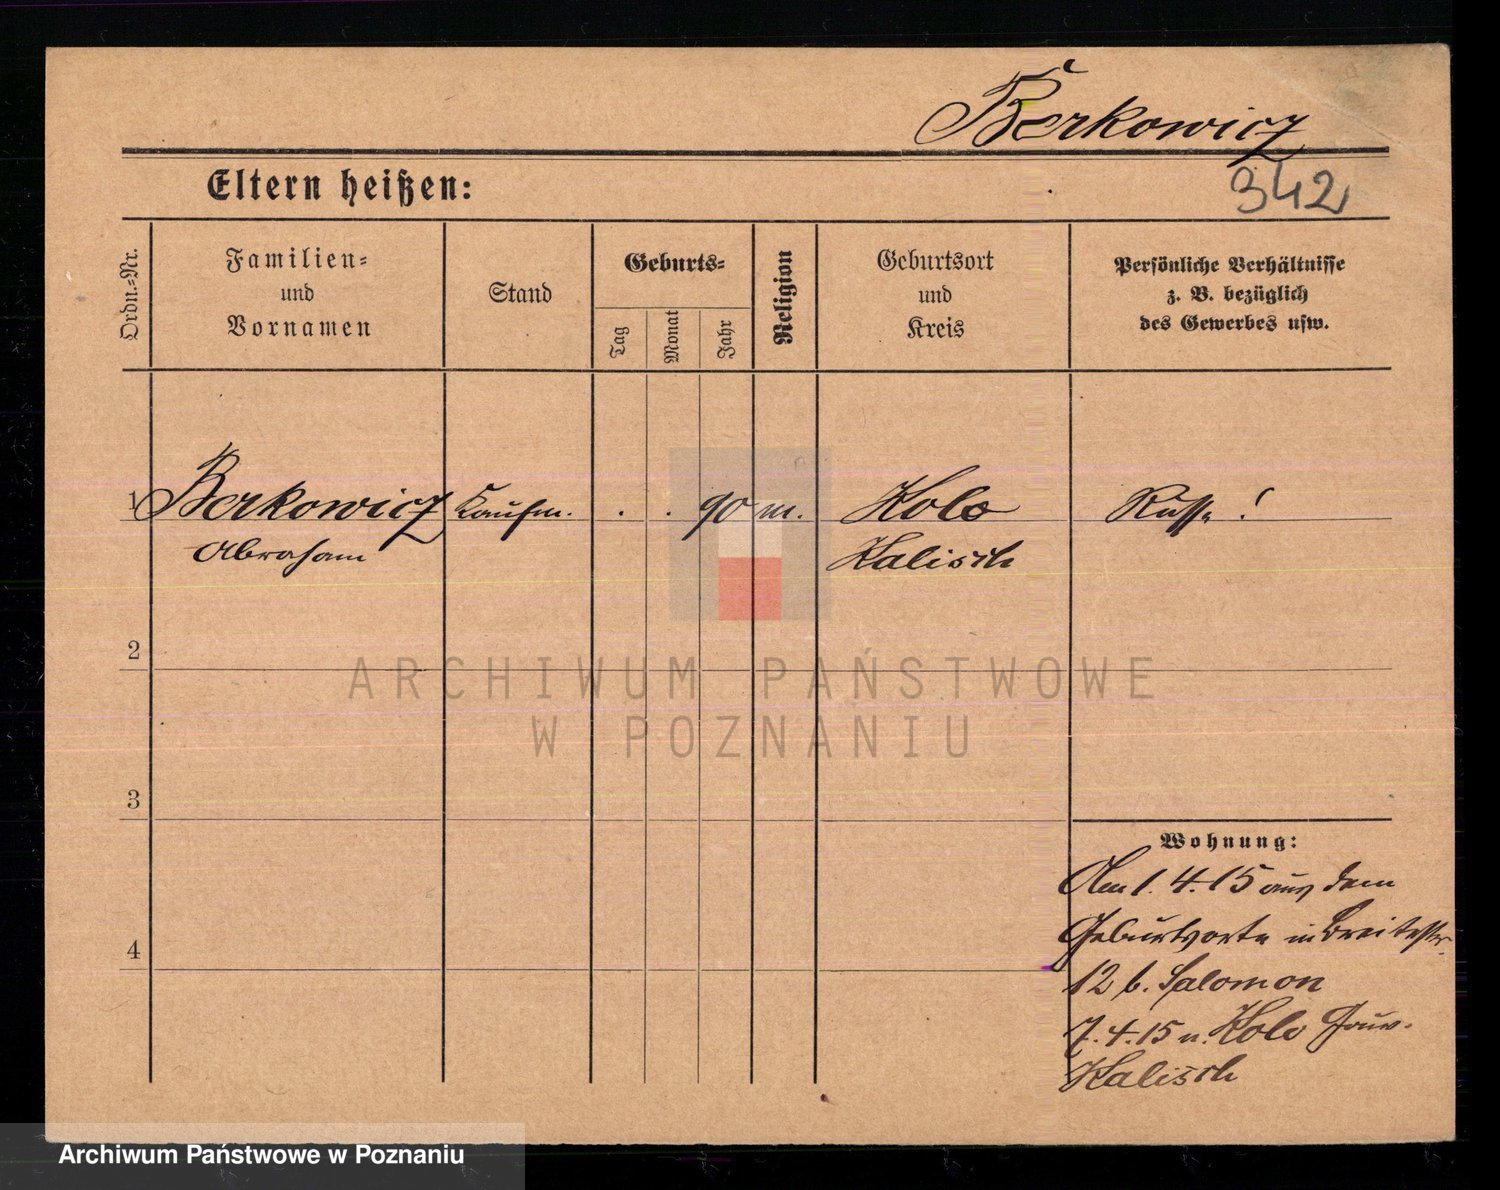 Berkowicz
342
Eltern heißen:
Ordn.-Nr.
Familien-
und
Vornamen
Stand
Geburts-
Tag
Monat
Jahr
Religion
Geburtsort
und
Kreis
Persönliche Verhältnisse
z. B. bezüglich
des Gewerbes usw.
1 Berkowicz Kaufm. . . 90 m. Kolo Russe!
Abraham Kalisch
2
ARCHIWUM PAŃSTWOWE
W POZNANIU
3
Wohnung:
Am 1.4.15 aus dem
Geburtsorte in Breitestr.
4
12 b. Salomon
7.4.15 n. Kolo Gouv.
Kalisch
Archiwum Państwowe w Poznaniu